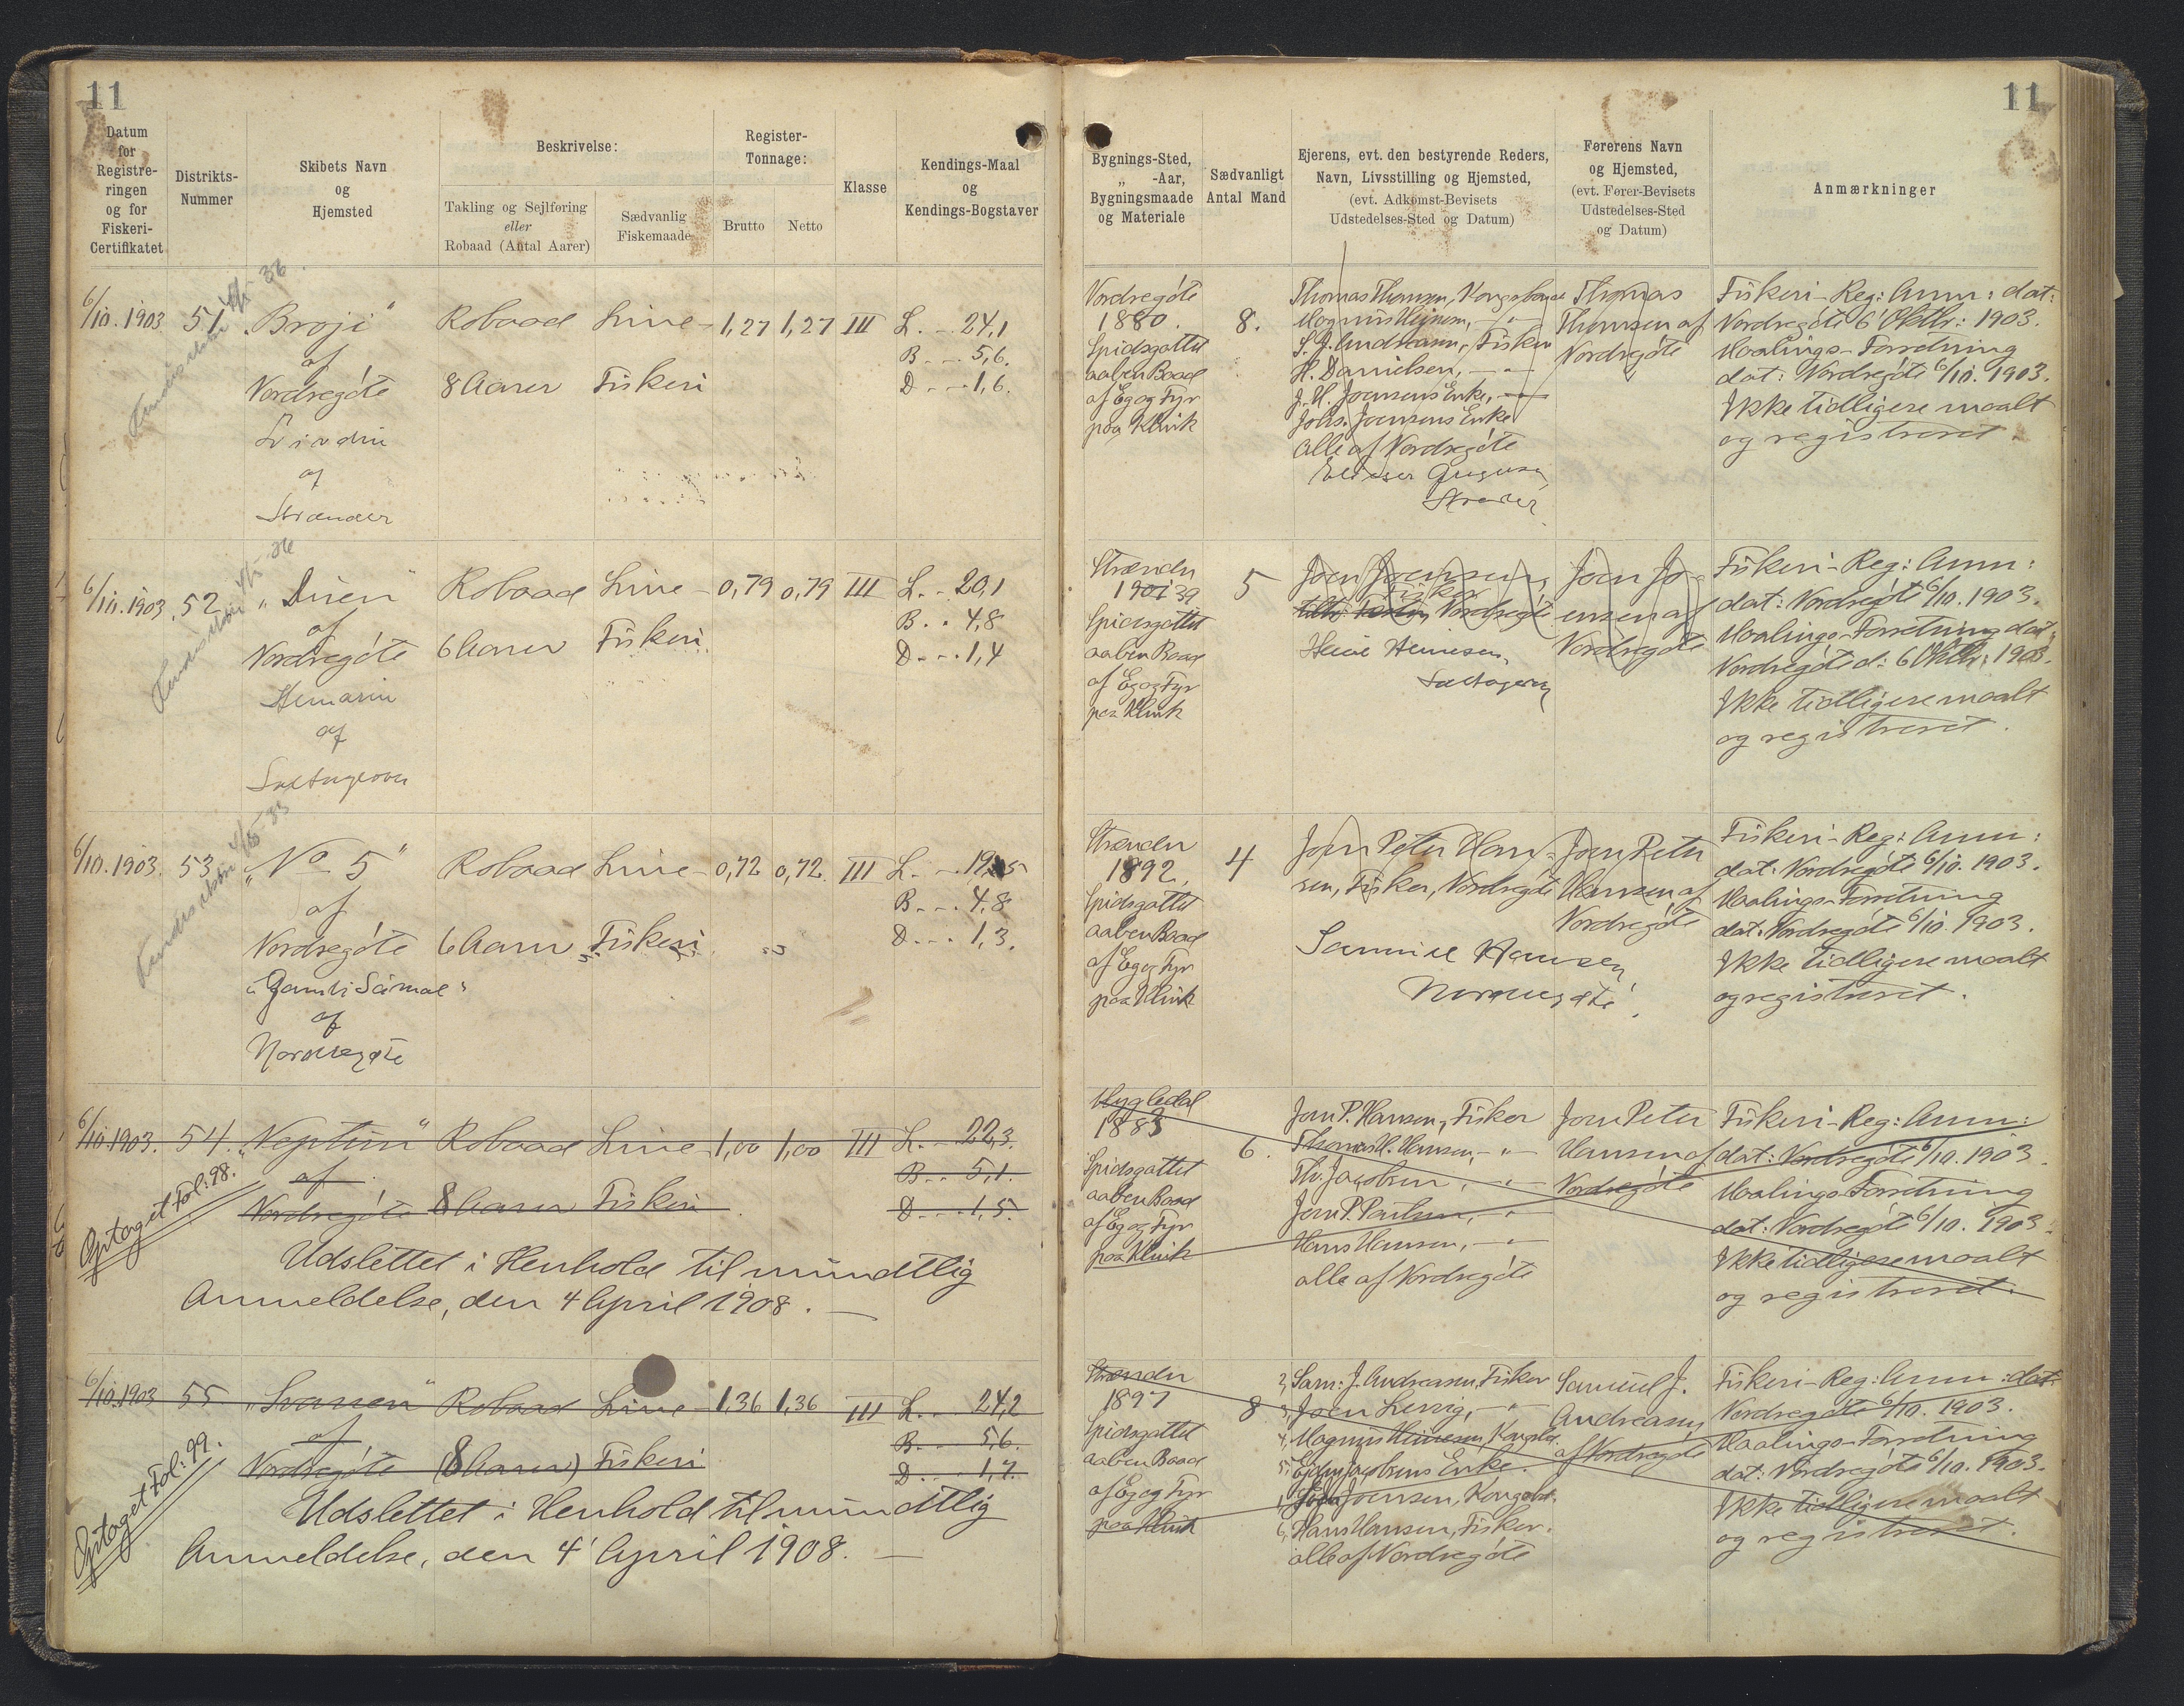 11
11
Datum
for
Registre-
ringen
og for
Fiskeri-
Certifikatet
Distrikts-
Nummer
Skibets Navn
og
Hjemsted
Beskrivelse:
Takling og Sejlføring
eller
Robaad (Antal Aarer)
Sædvanlig
Fiskemaade
Register-
Tonnage:
Brutto
Netto
Klasse
Kendings-Maal
og
Kendings-Bogstaver
Bygnings-Sted,
„ -Aar,
Bygningsmaade
og Materiale
Sædvanligt
Antal Mand
Ejerens, evt. den bestyrende Reders,
Navn, Livsstilling og Hjemsted,
(evt. Adkomst-Bevisets
Udstedelses-Sted og Datum)
Førerens Navn
og Hjemsted,
(evt. Fører-Bevisets
Udstedelses-Sted
og Datum)
Anmærkninger
6/10. 1903 51. „Broji“ Robaad Line- 1,27 1,27 III L. - 24,1
af B - - 5,6.
Nordregøte 8 Aarer Fiskeri D - - 1,6.
af
Strænder
Nordregøte
1880.
Spidsgattet
aaben Baad
af Eg og Fyr
paa Klink
8.
Thomas Thomsen, Kongsbonde
S. J. Andreasen, Fisker
H. Danielsen, - " -
J. H. Joensens Enke, - " -
Johs. Joensens Enke
alle af Nordregøte
Thomas
Thomsen af
Nordregøte
Fiskeri-Reg: Anm: dat:
Nordregøte 6' Oktbr: 1903.
Maalings-Forretning
dat: Nordregøte 6/10. 1903.
Ikke tidligere maalt
og registreret.
6/10. 1903 52. „Duen“ Robaad Line- 0,79 0,79 III L. - 20,1
af B. . 4,8
Nordregøte 6 Aarer Fiskeri. D - - 1,4
af
Strænder
Spidsgattet
aaben Baad
af Eg og Fyr
paa Klink
5
Joen Joensen,
Fisker
Nordregøte
Joen Jo-
ensen af
Nordregøte
Fiskeri-Reg: Anm:
dat: Nordregøte 6/10. 1903.
Maalings-Forretning dat:
Nordregøte d: 6 Oktbr: 1903.
Ikke tidligere maalt
og registreret.
6/10. 1903. 53 „No 5“ Robaad Line- 0,72 0,72. III L. - 19,5
af B - - . 4,8
Nordregøte 6 Aarer Fiskeri. D - - . 1,3.
„Gamli Sámal“
af
Nordregøte
Strænder
1892,
Spidsgattet
aaben Baad
af Eg og Fyr
paa Klink
4
Joen Peter Han-
sen, Fisker, Nordregøte
Samuel Hansen
Nordregøte.
Joen Peter
Hansen af
Nordregøte
Fiskeri-Reg: Anm:
dat: Nordregøte 6/10. 1903.
Maalings-Forretning
dat: Nordregøte 6/10. 1903.
Ikke tidligere maalt
og registreret.
6/10 1903. 54. „Neptun“ Robaad Line- 1,00 1,00 III L. - 22,3.
af B - - 5,1.
Nordregøte 8 Aarer Fiskeri. D - - . 1,5.
Optaget Fol: 98.
Udslettet i Henhold til mundtlig
Anmeldelse, den 4 April 1908. -
1883
Spidsgattet
aaben Baad
af Eg og Fyr
paa Klink
6.
Joen P. Hansen, Fisker
Thomas H. Hansen, - " -
Th. Jacobsen, - " -
Joen P. Poulsen, - " -
Hans Hansen, - " -
alle af Nordregøte
Joen Peter
Hansen af
Nordregøte
Fiskeri-Reg: Anm:
dat: Nordregøte 6/10. 1903.
Maalings-Forretning
dat: Nordregøte 6/10. 1903.
Ikke tidligere maalt
og registreret.
6/10. 1903 55 „Svanen“ Robaad Line- 1,36 1,36 III L. - 24,2
af B - - 5,6.
Nordregøte (8 Aarer) Fiskeri D - - . 1,7.
Optaget Fol: 99.
Udslettet i Henhold til mundtlig
Anmeldelse, den 4' April 1908. -
Strænder
1897
Spidsgattet
aaben Baad
af Eg og Fyr
paa Klink
8
2, Sam: J. Andreasen, Fisker
3, Joen Lervig, - " -
4, Magnus Heinesen, Kongsbd.
1, Joensen, Kongsbd.
6, Hans Hansen, Fisker.
alle af Nordregøte
Samuel J.
Andreasen
af Nordregøte
Fiskeri-Reg: Anm: dat:
Nordregøte 6/10. 1903.
Maalings-Forretning
dat: Nordregøte 6/10. 1903.
Ikke tidligere maalt
og registreret.